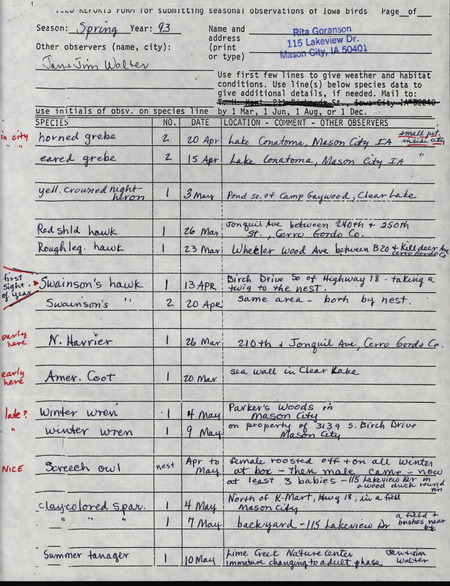 FIELD REPORTS FORM for submitting seasonal observations of Iowa birds Page of
Season: Spring Year: 93 Name and address (print or type) Rita Goranson
115 Lakeview Dr.
Mason City, IA 50401
Other observers (name, city):
Jan + Jim Walter
Use first few lines to give weather and habitat
conditions. Use line(s) below species data to
give additional details, if needed. Mail to:
use initials of obsv. on species line by 1 Mar, 1 Jun, 1 Aug, or 1 Dec.
SPECIES NO. DATE LOCATION - COMMENT - OTHER OBSERVERS
in city horned grebe 2 20 Apr Lake Conatoma, Mason City IA small pst. inside city
eared grebe 2 15 Apr Lake Conatoma, Mason City IA "
yell. crowned night-heron 1 3 May Pond so. of Camp Gaywood, Clear Lake
Red shld hawk 1 26 Mar Jonquil Ave between 240th + 250th
St., Cerro Gordo Co.
Rough leg. hawk 1 23 Mar Wheeler Wood Ave between B20 + Killdeer Ave
Cerro Gordo Co
first sight. of year Swainson's hawk 1 13 APR Birch Drive so of Highway 18 - taking a
twig to the nest.
Swainson's " 2 20 Apr same area - both by nest.
early here N. Harrier 1 26 Mar 210th + Jonquil Ave, Cerro Gordo Co.
early here Amer. Coot 1 20 Mar sea wall in Clear Lake
late? Winter wren 1 4 May Parker's Woods in
Mason City
" Winter wren 1 9 May on property of 3139 S. Birch Drive
Mason City
NICE Screech owl nest Apr to May Female roosted off + on all winter
at box - then male came - now
at least 3 babies - 115 Lakeview Dr in
a wood duck round
claycolored spar. 1 4 May North of K-Mart, Hwy 18, in a field
Mason City
" " 1 7 May backyard - 115 Lakeview Dr a field + bushes near by
Summer tanager 1 10 May Lime Creek Nature Center
immature changing to adult phase Jan + Jim Walter